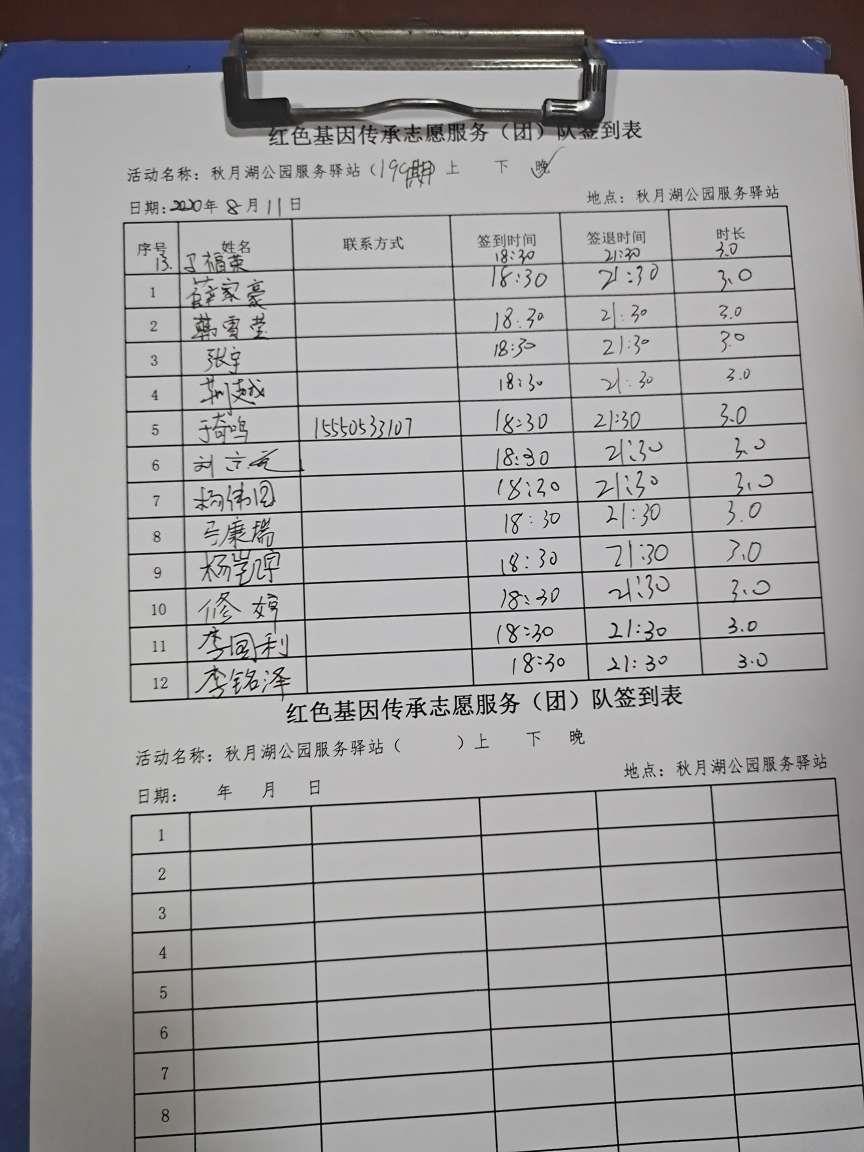 红色基因传承志愿服务（团）队签到表
活动名称：秋月湖公园服务驿站（199期）上 下 晚✓
日期：2020年8月11日 地点：秋月湖公园服务驿站
序号 姓名 联系方式 签到时间 签退时间 时长
13. 福英 18:30 21:30 3.0
1 薛家豪 18:30 21:30 3.0
2 韩雪莹 18:30 21:30 3.0
3 张宇 18:30 21:30 3.0
4 荆越 18:30 21:30 3.0
5 于奇鸣 15550533107 18:30 21:30 3.0
6 刘 18:30 21:30 3.0
7 杨伟国 18:30 21:30 3.0
8 马康瑞 18:30 21:30 3.0
9 杨凯宇 18:30 21:30 3.0
10 修婷 18:30 21:30 3.0
11 李国利 18:30 21:30 3.0
12 李铭泽 18:30 21:30 3.0
红色基因传承志愿服务（团）队签到表
活动名称：秋月湖公园服务驿站（ ）上 下 晚
日期： 年 月 日 地点：秋月湖公园服务驿站
1
2
3
4
5
6
7
8